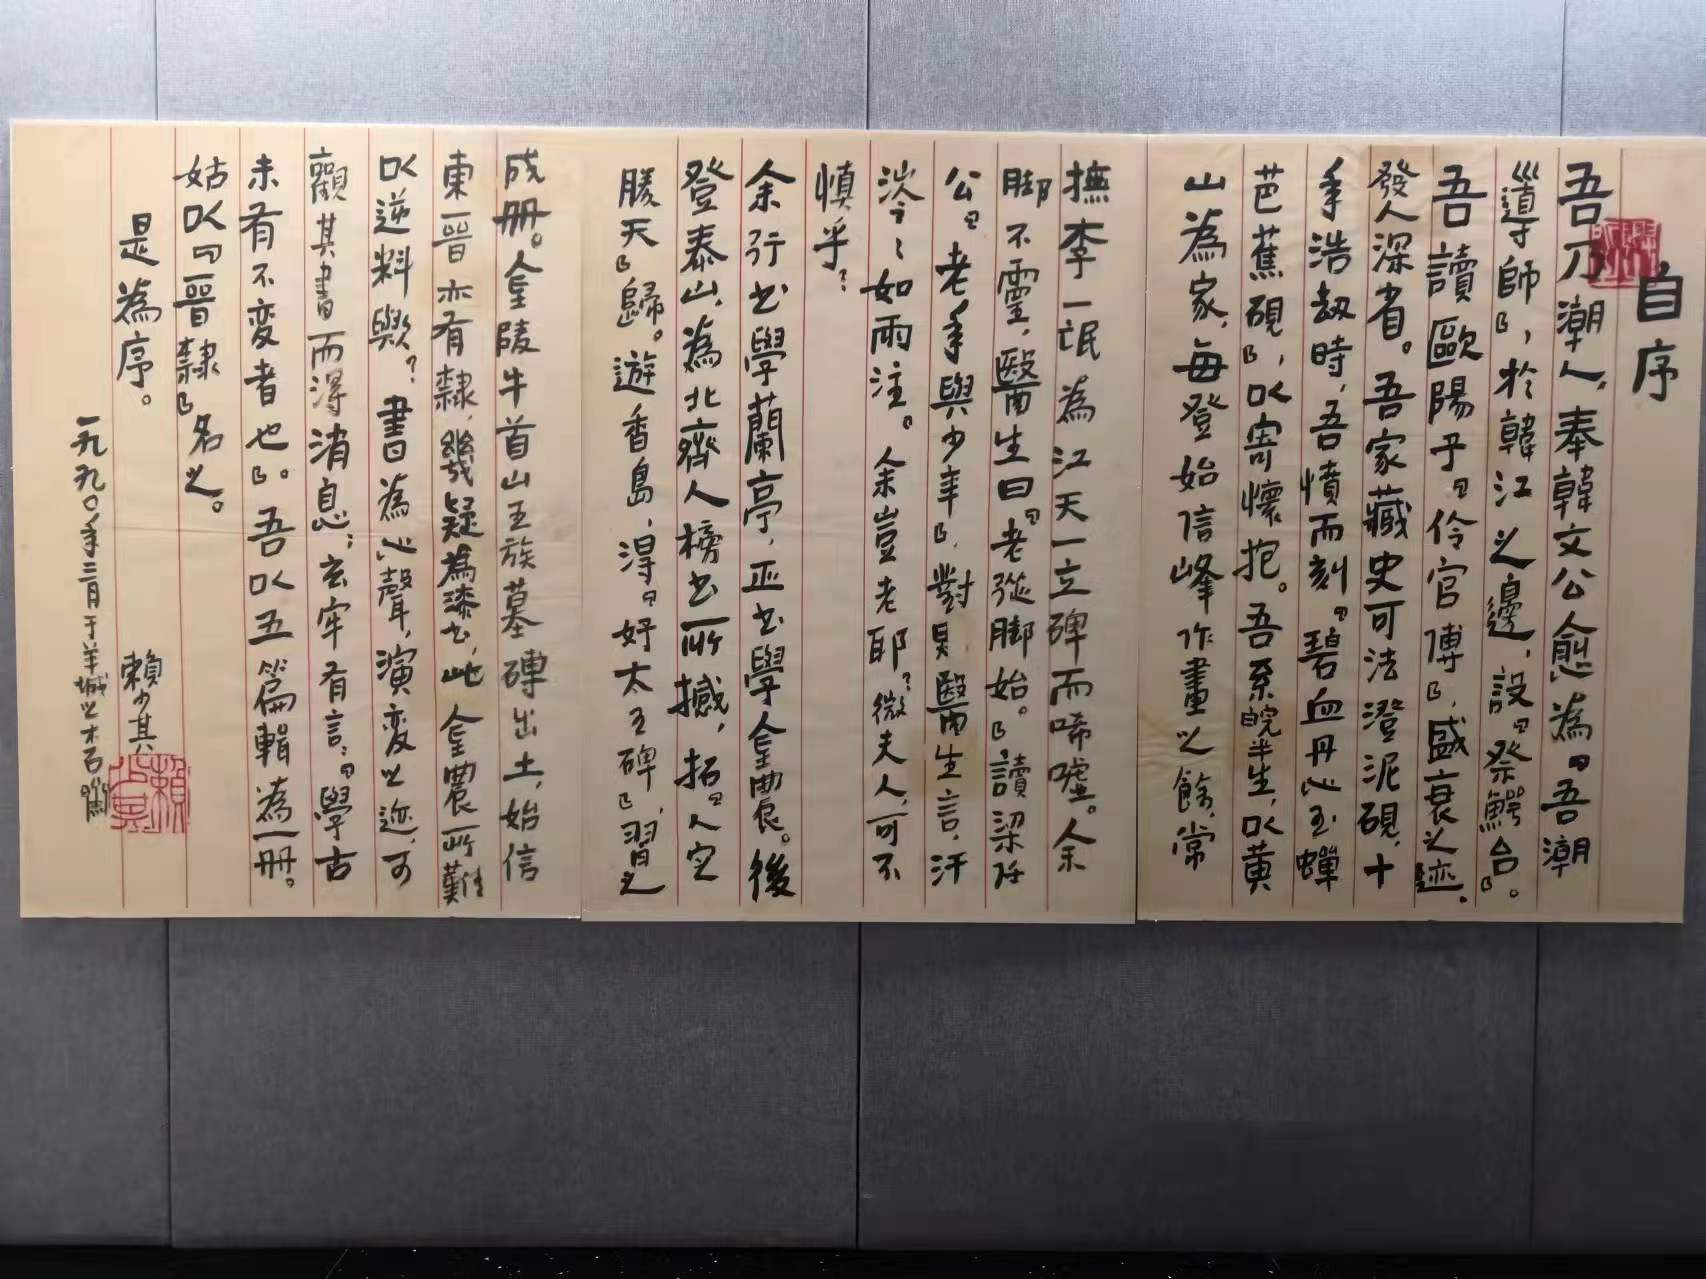 自序
吾乃潮人，奉韓文公愈為「吾潮
導師」，於韓江之邊，設「祭鰐台」。
吾讀歐陽子「伶官傳」，盛衰之迹，
發人深省。吾家藏史可法澄泥硯，十
年浩劫時，吾憤而刻「碧血丹心玉蟬
芭蕉硯」，以寄懷抱。吾系皖半生，以黄
山為家，每登始信峰作畫之餘，常
撫李一氓為江天一立碑而唏噓。余
脚不靈，醫生曰：「老從脚始。」讀梁任
公「老年與少年」，對見醫生言，汗
涔々如雨注。余豈老耶？微夫人，可不
慎乎？
余行书學蘭亭，正书學金農。後
登泰山，為北齊人榜书所撼，拓「人定
勝天」歸。遊香島，得「好太王碑」，習之
成册。金陵牛首山王族墓磚出土，始信
東晉亦有隸，幾疑為漆书，此金農所難
以逆料歟？書為心聲，演変之迹，可
觀其書而得消息；玄宰有言：「學古
未有不変者也」。吾以五篇輯為一册。
姑以「晉隸」名之。
是為序。
賴少其
一九九〇年三月于羊城之木石齋
賴少其